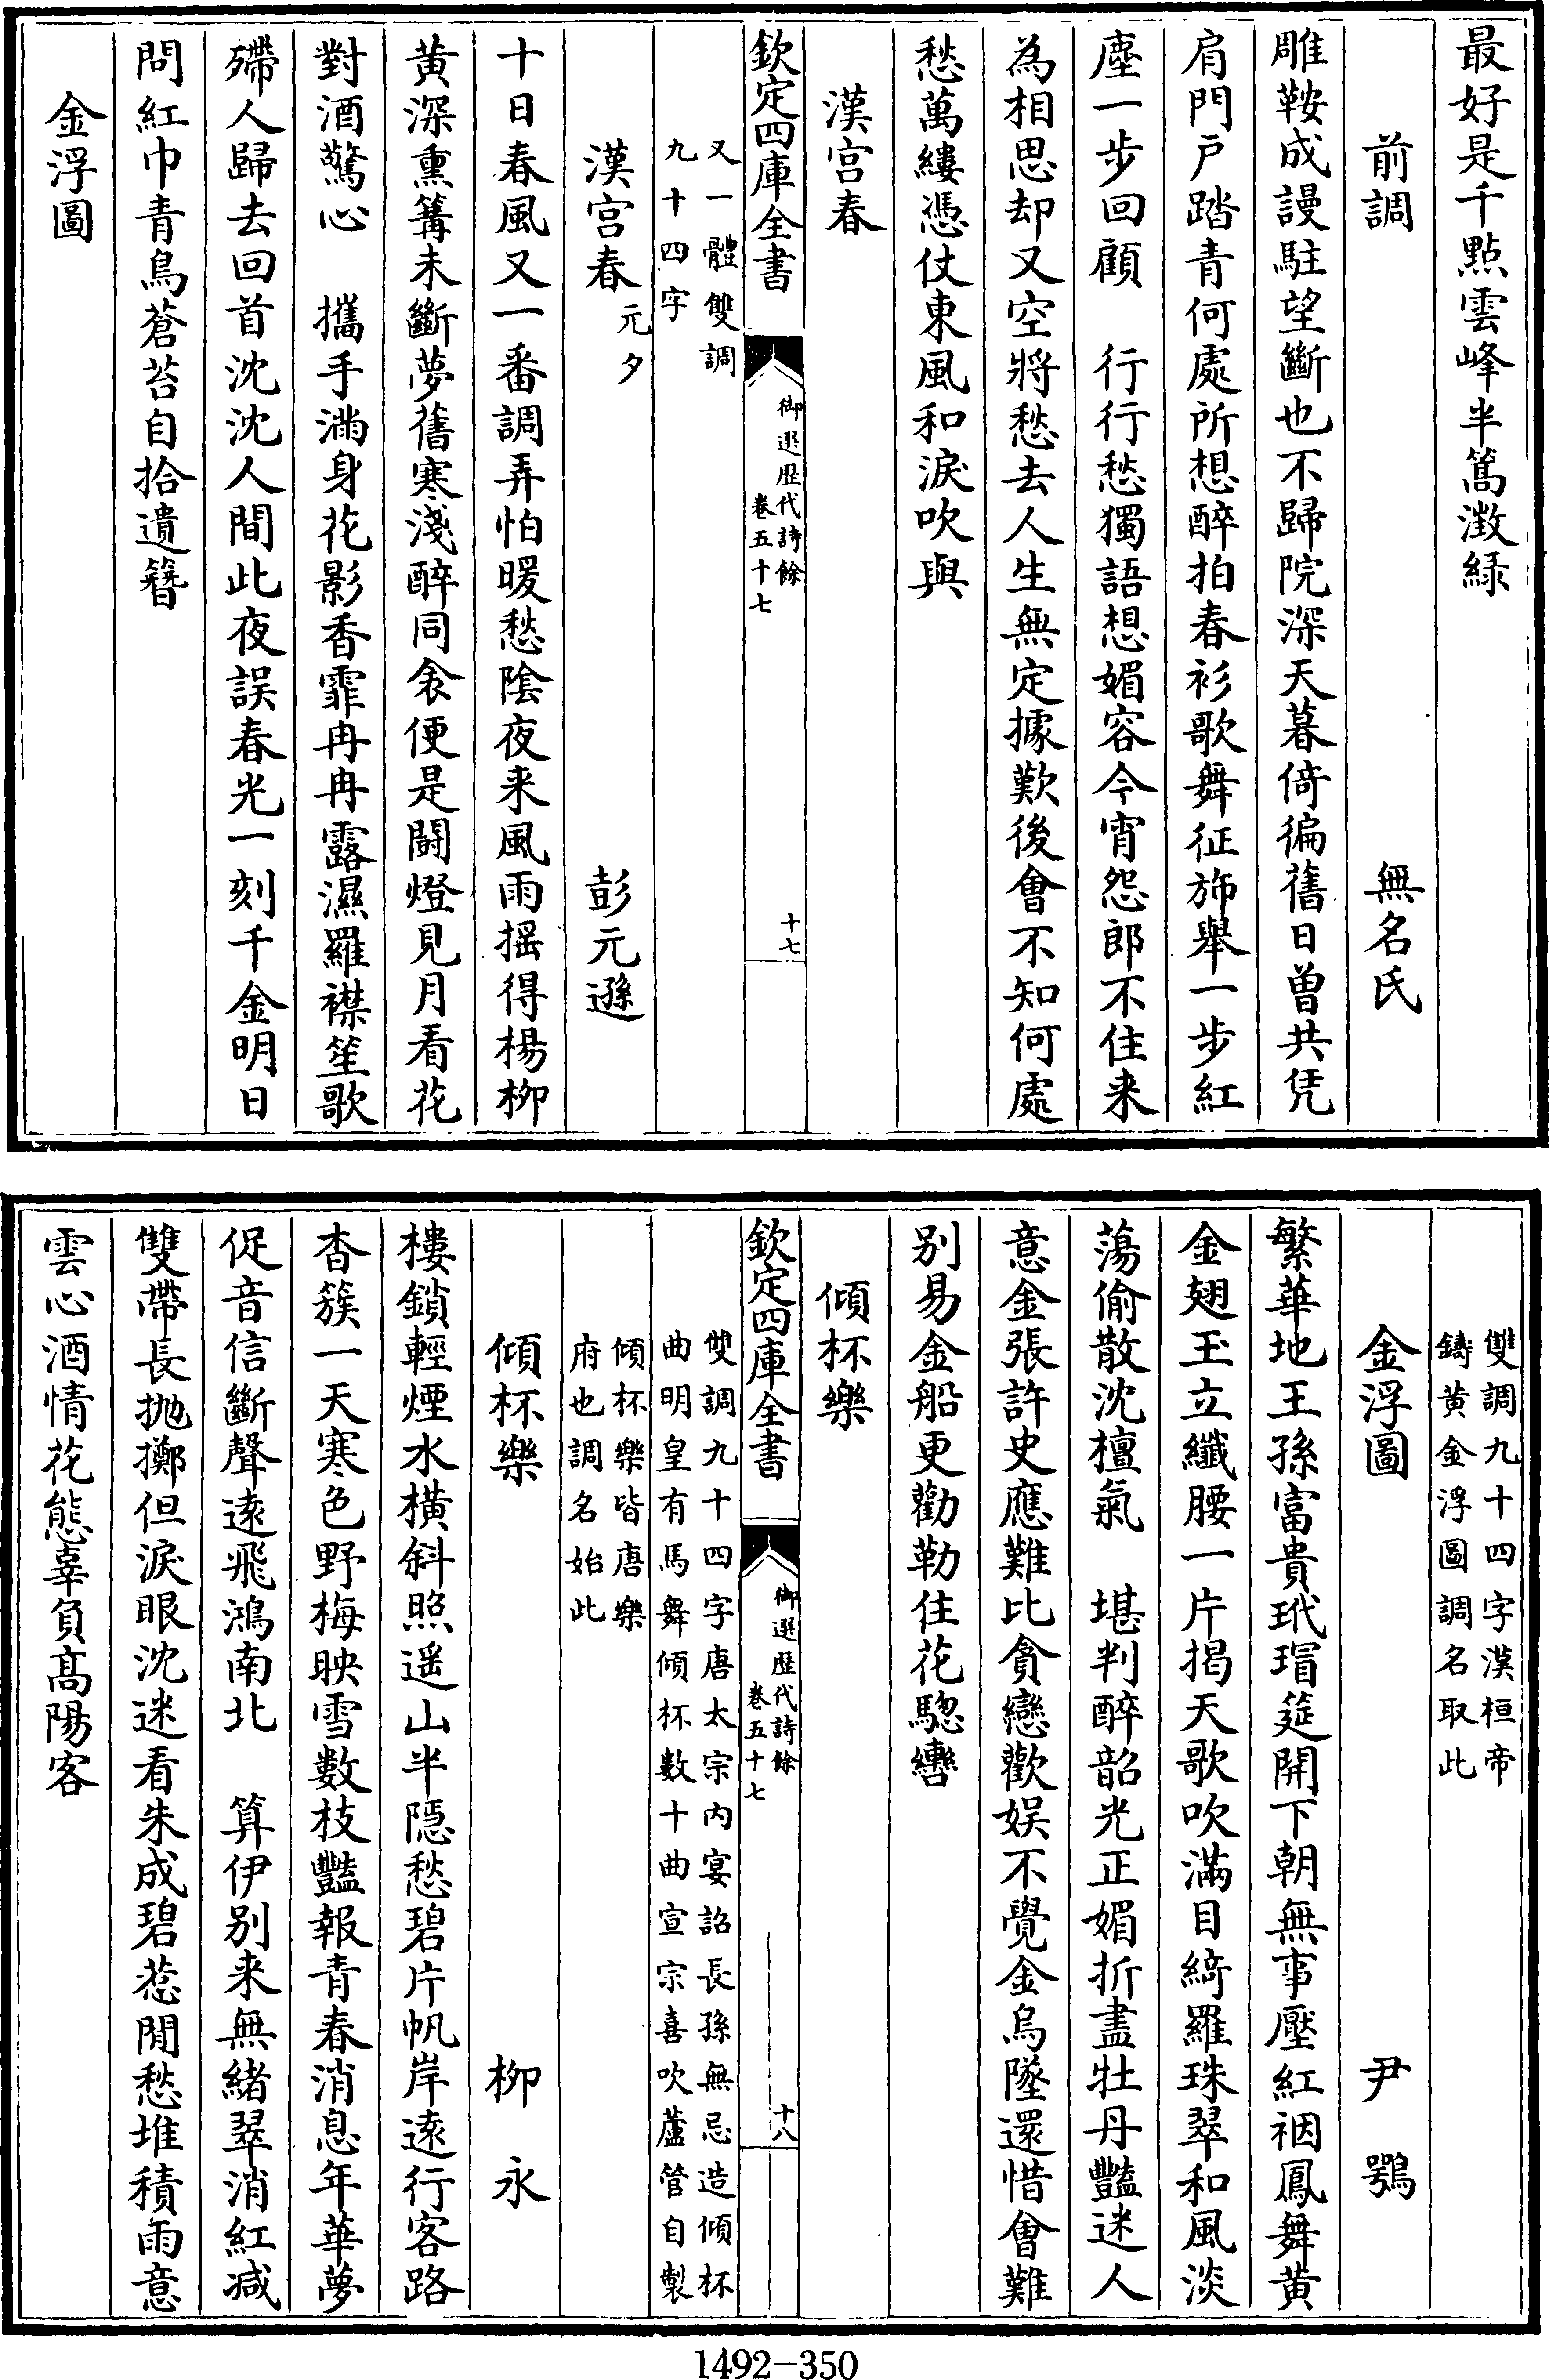 最好是千點雲峰半篙澂緑
前調　無名氏
雕鞍成謾駐望斷也不歸院深天暮倚徧舊日曽共凭
肩門戸踏青何處所想醉拍春衫歌舞征斾舉一步紅
塵一步回顧　行行愁獨語想媚容今宵怨郎不住来
為相思却又空將愁去人生無定據歎後會不知何處
愁萬縷憑仗東風和淚吹與
漢宫春
欽定四庫全書
御選歴代詩餘
卷五十七
十七
又一體雙調
九十四字
漢宫春元夕　彭元遜
十日春風又一番調弄怕暖愁隂夜来風雨揺得楊柳
黄深熏篝未斷夢舊寒淺醉同衾便是闘燈見月看花
對酒驚心　攜手滿身花影香霏冉冉露濕羅襟笙歌
殢人歸去回首沈沈人間此夜誤春光一刻千金明日
問紅巾青鳥蒼苔自拾遺簪
金浮圖
雙調九十四字漢桓帝
鑄黄金浮圖調名取此
金浮圖　尹鶚
繁華地王孫富貴玳瑁筵開下朝無事壓紅裀鳳舞黄
金翅玉立纖腰一片揭天歌吹滿目綺羅珠翠和風淡
蕩偷散沈檀氣　堪判醉韶光正媚折盡牡丹豔迷人
意金張許史應難比貪戀歡娱不覺金烏墜還惜會難
别易金船更勸勒住花驄轡
傾杯樂
欽定四庫全書
御選歴代詩餘
卷五十七
十八
雙調九十四字唐太宗内宴詔長孫無忌造傾杯
曲明皇有馬舞傾杯數十曲宣宗喜吹蘆管自製
傾杯樂皆唐樂
府也調名始此
傾杯樂　柳永
樓鎖輕煙水横斜照遥山半隱愁碧片帆岸逺行客路
杳簇一天寒色野梅映雪數枝豔報青春消息年華夢
促音信斷聲逺飛鴻南北　算伊别来無緒翠消紅减
雙帶長抛擲但淚眼沈迷看朱成碧惹閒愁堆積雨意
雲心酒情花態辜負髙陽客
1492-350